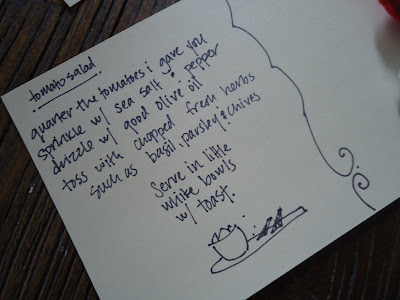 tomato salad
quarter the tomatoes i gave you
sprinkle w/ sea salt & pepper
drizzle w/ good olive oil
toss with chopped fresh herbs
such as basil, parsley & chives
Serve in little
white bowls
w/ toast.